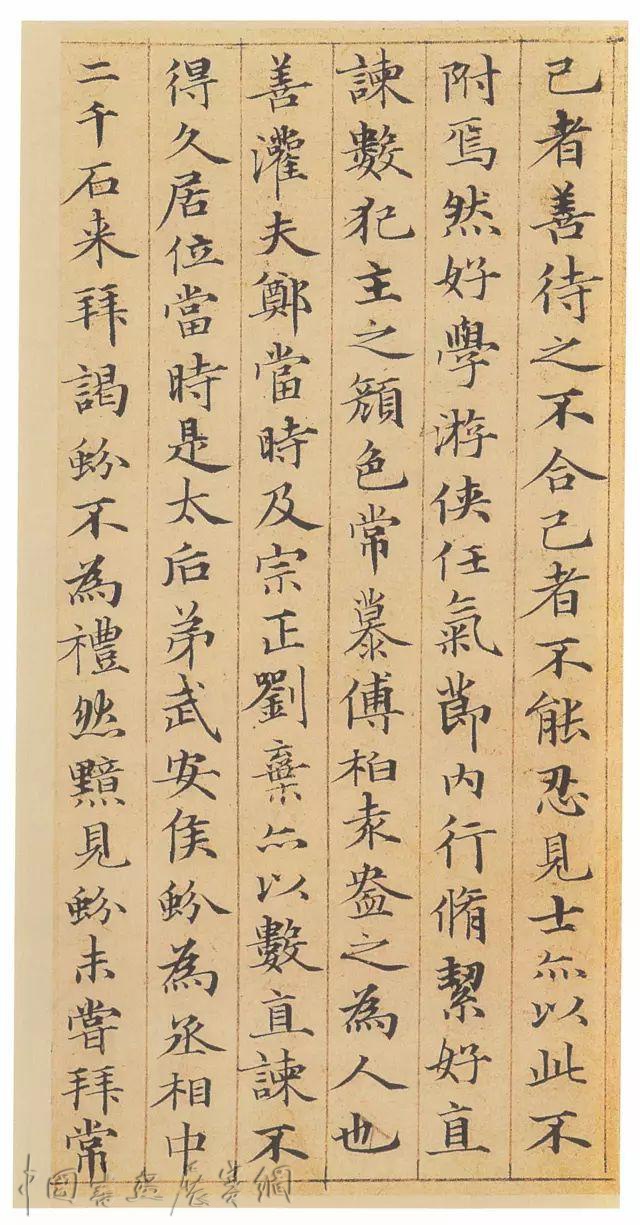 己者善待之不合己者不能忍見士亦以此不
附焉然好學游俠任氣節内行脩絜好直
諫數犯主之顏色常慕傅柏袁盎之為人也
善灌夫鄭當時及宗正劉棄亦以數直諫不
得久居位當時是太后弟武安侯蚡為丞相中
二千石来拜謁蚡不為禮然黯見蚡未嘗拜常
中国書画展賽網